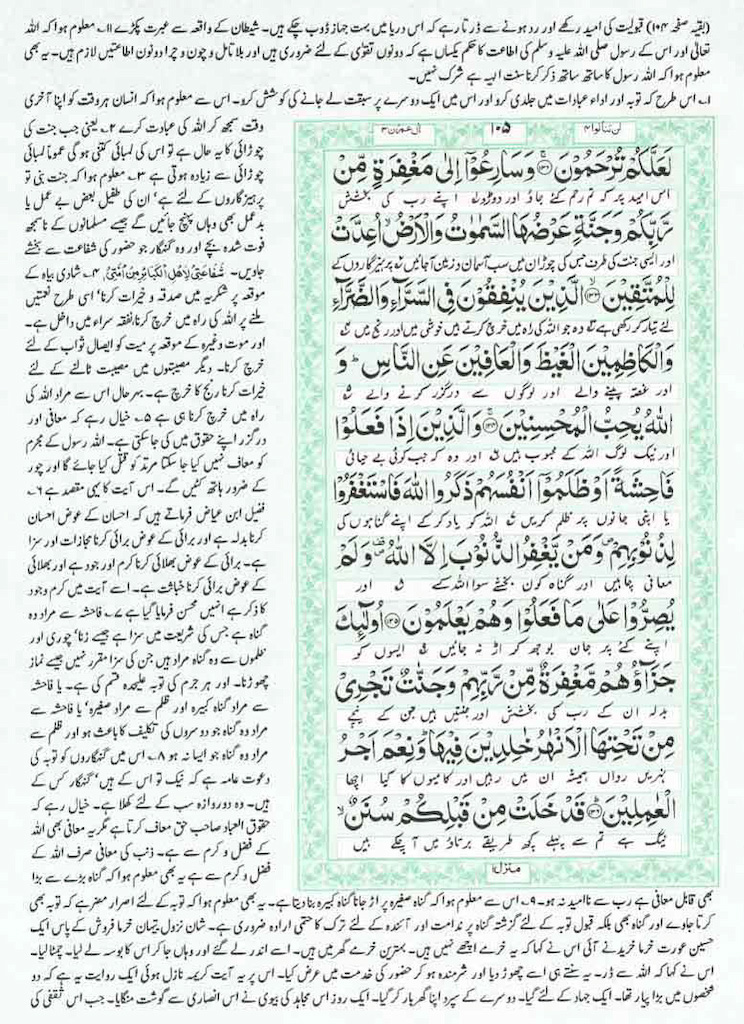 (بقیہ صفحہ ۱۰۴) قبولیت کی امید رکھے اور رد ہونے سے ڈرتا رہے کہ اس دریا میں بہت جہاز ڈوب چکے ہیں۔ شیطان کے واقعہ سے عبرت پکڑے ۱۱۔ معلوم ہوا کہ اللہ
تعالیٰ اور اس کے رسول صلی اللہ علیہ وسلم کی اطاعت کا حکم یکساں ہے کہ دونوں تقویٰ کے لئے ضروری ہیں اور بلا تامل و چون و چرا دونوں اطاعتیں لازم ہیں۔ یہ بھی
معلوم ہوا کہ اللہ رسول کا ساتھ ساتھ ذکر کرنا سنت الہیہ ہے شرک نہیں۔
۱۔ اس طرح کہ توبہ اور اداء عبادات میں جلدی کرو اور اس میں ایک دوسرے پر سبقت لے جانے کی کوشش کرو۔ اس سے معلوم ہوا کہ انسان ہر وقت کو اپنا آخری
لن تنالوا۴ ۱۰۵ اٰل عمرٰن۳
لَعَلَّكُمْ تُرْحَمُوْنَ ۝۱۳۲ وَسَارِعُوْۤا اِلٰى مَغْفِرَةٍ مِّنْ
اس امید پر کہ تم رحم کئے جاؤ اور دوڑو اپنے رب کی بخشش
رَّبِّكُمْ وَجَنَّةٍ عَرْضُهَا السَّمٰوٰتُ وَالْاَرْضُ ۙ اُعِدَّتْ
اور ایسی جنت کی طرف جس کی چوڑان میں سب آسمان و زمین آجائیں پرہیزگاروں کے
لِلْمُتَّقِيْنَ ۝۱۳۳ الَّذِيْنَ يُنْفِقُوْنَ فِى السَّرَّآءِ وَالضَّرَّآءِ
لئے تیار کر رکھی ہے وہ جو اللہ کی راہ میں خرچ کرتے ہیں خوشی میں اور رنج میں
وَالْكٰظِمِيْنَ الْغَيْظَ وَالْعَافِيْنَ عَنِ النَّاسِ ؕ وَ
اور غصہ پینے والے اور لوگوں سے درگزر کرنے والے
اللّٰهُ يُحِبُّ الْمُحْسِنِيْنَ ۝۱۳۴ وَالَّذِيْنَ اِذَا فَعَلُوْا
اور نیک لوگ اللہ کے محبوب ہیں اور وہ کہ جب کوئی بے حیائی
فَاحِشَةً اَوْ ظَلَمُوْۤا اَنْفُسَهُمْ ذَكَرُوا اللّٰهَ فَاسْتَغْفَرُوْا
یا اپنی جانوں پر ظلم کریں اللہ کو یاد کر کے اپنے گناہوں کی
لِذُنُوْبِهِمْ ۪ وَمَنْ يَّغْفِرُ الذُّنُوْبَ اِلَّا اللّٰهُ ۪ وَلَمْ
معافی چاہیں اور گناہ کون بخشے سوا اللہ کے اور
يُصِرُّوْا عَلٰى مَا فَعَلُوْا وَهُمْ يَعْلَمُوْنَ ۝۱۳۵ اُولٰٓئِكَ
اپنے کئے پر جان بوجھ کر اڑ نہ جائیں ایسوں کو
جَزَآؤُهُمْ مَّغْفِرَةٌ مِّنْ رَّبِّهِمْ وَجَنّٰتٌ تَجْرِىْ
بدلہ ان کے رب کی بخشش اور جنتیں ہیں جن کے نیچے
مِنْ تَحْتِهَا الْاَنْهٰرُ خٰلِدِيْنَ فِيْهَا ؕ وَنِعْمَ اَجْرُ
نہریں رواں ہمیشہ ان میں رہیں اور کامیوں کا کیا اچھا
الْعٰمِلِيْنَ ۝۱۳۶ قَدْ خَلَتْ مِنْ قَبْلِكُمْ سُنَنٌ ۙ
نیگ ہے تم سے پہلے کچھ طریقے برتاؤ میں آچکے ہیں
منزل۱
وقت سمجھ کر اللہ کی عبادت کرے ۲۔ یعنی جب جنت کی
چوڑائی کا یہ حال ہے تو اس کی لمبائی کتنی ہو گی عموماً لمبائی
چوڑائی سے زیادہ ہوتی ہے ۳۔ معلوم ہوا کہ جنت بنی تو
پرہیزگاروں کے لئے ہے' ان کی طفیل بعض بے عمل یا
بدعمل بھی وہاں پہنچ جائیں گے جیسے مسلمانوں کے ناسمجھ
فوت شدہ بچے اور وہ گنہگار جو حضور کی شفاعت سے بخشے
جاویں۔ شَفَاعَتِیْ لِاَهْلِ الْکَبَائِرِ مِنْ اُمَّتِیْ ۴۔ شادی بیاہ کے
موقعہ پر شکریہ میں صدقہ و خیرات کرنا' اسی طرح نعمتیں
ملنے پر اللہ کی راہ میں خرچ کرنا نفقہ سراء میں داخل ہے۔
اور موت وغیرہ کے موقعہ پر میت کو ایصال ثواب کے لئے
خرچ کرنا۔ دیگر مصیبتوں میں مصیبت ٹالنے کے لئے
خیرات کرنا رنج کا خرچ ہے۔ بہرحال اس سے مراد اللہ کی
راہ میں خرچ کرنا ہی ہے ۵۔ خیال رہے کہ معافی اور
درگزر اپنے حقوق میں کی جاسکتی ہے۔ اللہ رسول کے مجرم
کو معاف نہیں کیا جا سکتا مرتد کو قتل کیا جائے گا اور چور
کے ضرور ہاتھ کٹیں گے۔ اس آیت کا یہی مقصد ہے ۶۔
فضیل ابن عیاض فرماتے ہیں کہ احسان کے عوض احسان
کرنا بدلہ ہے اور برائی کے عوض برائی کرنا مجازات اور سزا
ہے۔ برائی کے عوض بھلائی کرنا کرم اور جود ہے اور بھلائی
کے عوض برائی کرنا خباثت ہے۔ اسے آیت میں کرم وجود
کا ذکر ہے انہیں محسن فرمایا گیا ہے ۷۔ فاحشہ سے مراد وہ
گناہ ہے جس کی شریعت میں سزا ہے جیسے زنا' چوری اور
ظلموں سے وہ گناہ مراد ہیں جن کی سزا مقرر نہیں جیسے نماز
چھوڑنا۔ اور ہر جرم کی توبہ علیحدہ قسم کی ہے۔ یا فاحشہ
سے مراد گناہ کبیرہ اور ظلم سے مراد صغیرہ' یا فاحشہ سے
مراد وہ گناہ جو دوسروں کی تکلیف کا باعث ہو اور ظلم سے
مراد وہ گناہ جو ایسا نہ ہو ۸۔ اس میں گنہگاروں کو توبہ کی
دعوت عامہ ہے کہ نیک تو اس کے ہیں' گنہگار کس کے
ہیں۔ وہ دوروازہ سب کے لئے کھلا ہے۔ خیال رہے کہ
حقوق العباد صاحب حق معاف کرتا ہے مگر یہ معافی بھی اللہ
کے فضل و کرم سے ہے۔ ذنب کی معافی صرف اللہ کے
فضل و کرم سے ہے یہ بھی معلوم ہوا کہ گناہ بڑے سے بڑا
بھی قابل معافی ہے رب سے ناامید نہ ہو۔ ۹۔ اس سے معلوم ہوا کہ گناہ صغیرہ پر اڑ جانا گناہ کبیرہ بنا دیتا ہے۔ یہ بھی معلوم ہوا کہ توبہ کے لئے اصرار مضر ہے کہ توبہ بھی
کرتا جاوے اور گناہ بھی بلکہ قبول توبہ کے لئے گزشتہ گناہ پر ندامت اور آئندہ کے لئے ترک کا حتمی ارادہ ضروری ہے۔ شان نزول تیہان خرما فروش کے پاس ایک
حسین عورت خرما خریدنے آئی اس نے کہا کہ یہ خرمے اچھے نہیں ہیں۔ بہترین خرمے گھر میں ہیں۔ اسے اندر لے گئے اور وہاں جا کر اس کا بوسہ لے لیا۔ چمٹا لیا۔
اس نے کہا کہ اللہ سے ڈر۔ یہ سنتے ہی اسے چھوڑ دیا اور شرمندہ ہو کر حضور کی خدمت میں عرض کیا۔ اس پر یہ آیت کریمہ نازل ہوئی ایک روایت یہ ہے کہ دو
شخصوں میں بڑا پیار تھا۔ ایک جہاد کے لئے گیا۔ دوسرے کے سپرد اپنا گھر بار کر گیا۔ ایک روز اس مجاہد کی بیوی نے اس انصاری سے گوشت منگایا۔ جب اس ثقفی کی